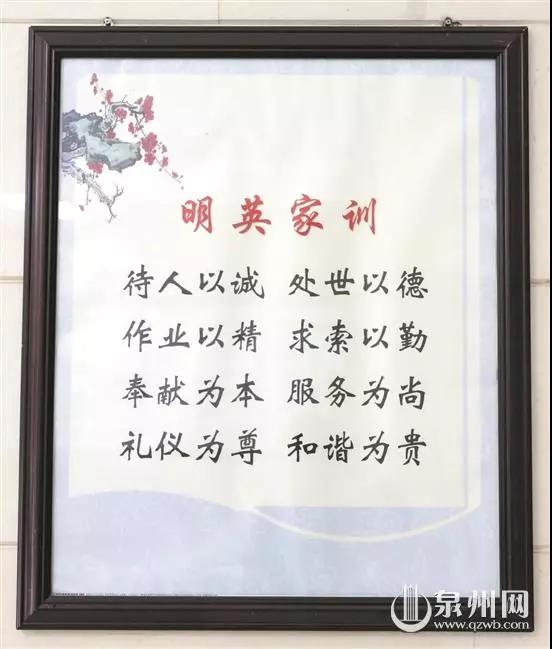 明英家训
待人以诚 处世以德
作业以精 求索以勤
奉献为本 服务为尚
礼仪为尊 和谐为贵
泉州网
www.qzwb.com